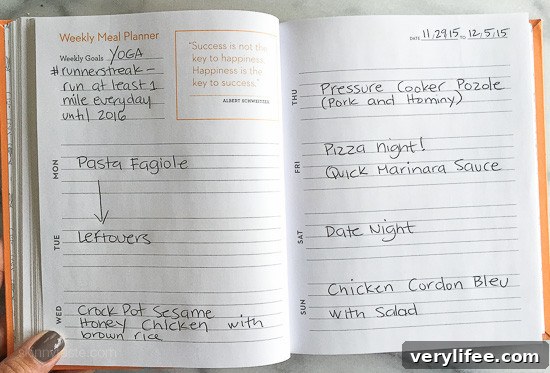 Weekly Meal Planner
Weekly Goals YOGA
#runnerstreak –
run at least 1
mile everyday
until 2016
"Success is not the
key to happiness.
Happiness is the
key to success."
ALBERT SCHWEITZER
MON
Pasta Fagiole
TUE
Leftovers
WED
Crock Pot Sesame
Honey Chicken with
brown rice
DATE 11,29,15 TO 12,5,15
THU
Pressure Cooker Pozole
(Pork and Hominy)
FRI
Pizza night!
Quick Marinara Sauce
SAT
Date Night
SUN
Chicken Cordon Bleu
with Salad
verylifee.com